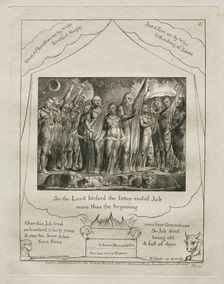 21
Great & Marvellous are thy Works
Lord God Almighty
Just & True are thy Ways
O thou King of Saints
So the Lord blessed the latter end of Job
more than the beginning
After this Job lived
an hundred & forty years
& saw his Sons & his
Sons Sons
even four Generations
So Job died
being old
& full of days